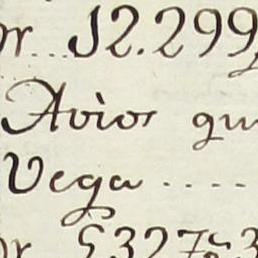 or... 12.299
Avios qu
Vega ....
or 5327